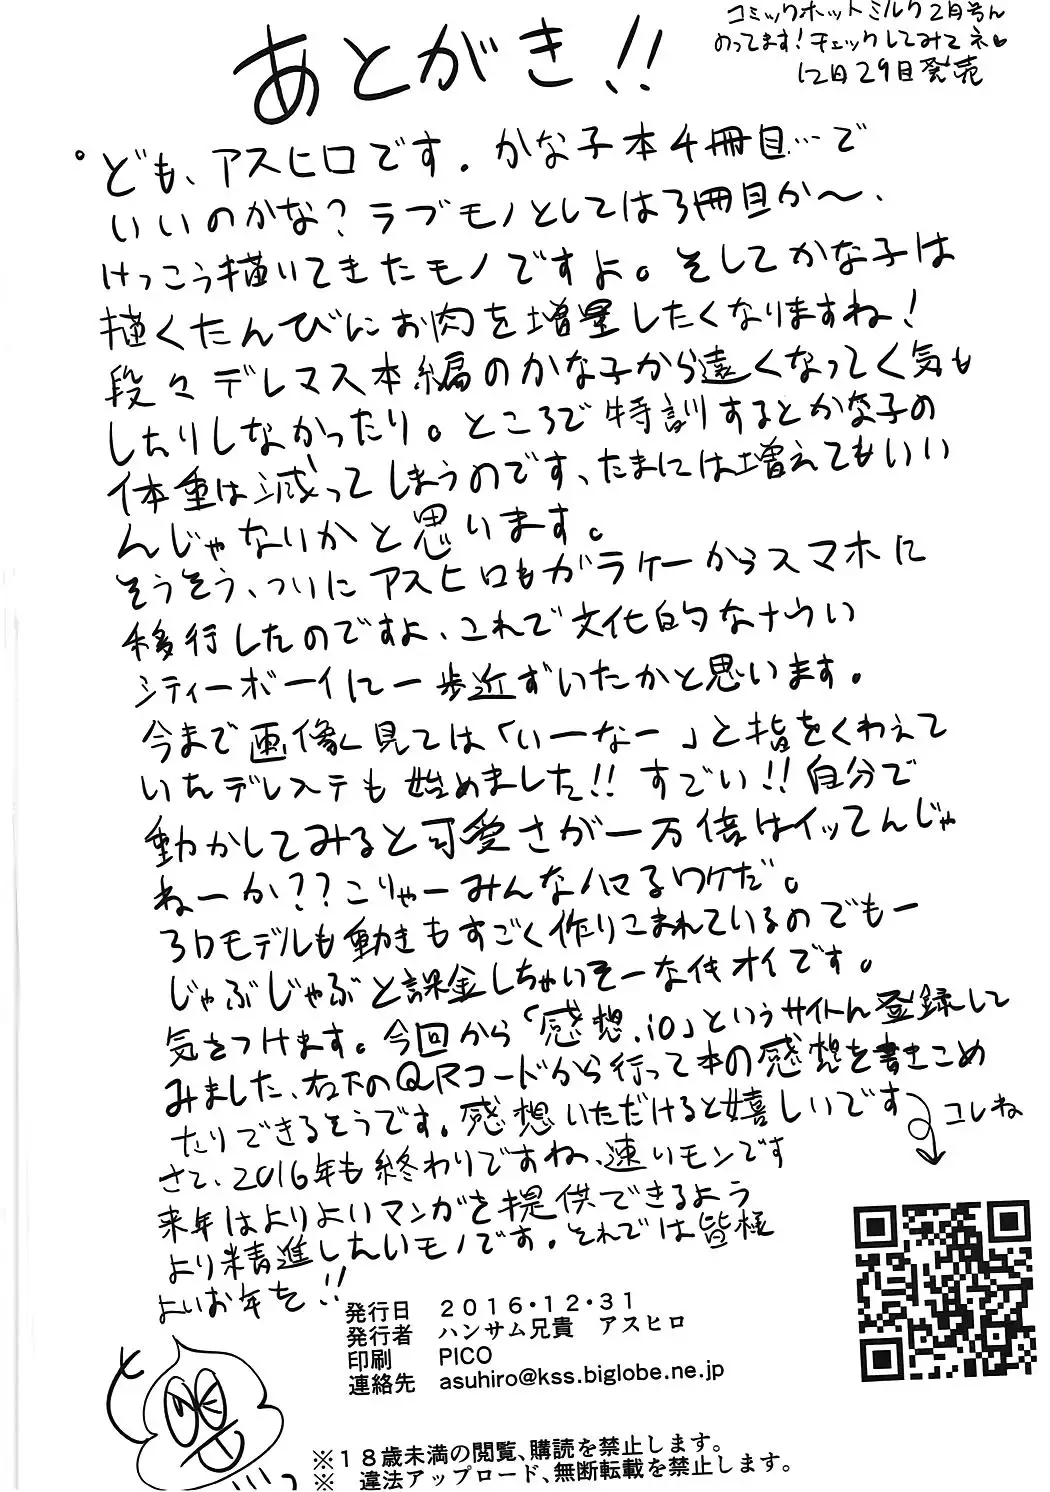 コミックホットミルク2月号ん
のってます!チェックしてみてネ♥
12月29日発売
あとがき!!
。ども、アスヒロです。かな子本4冊目…で
いいのかな?ラブモノとしては3冊目か〜、
けっこう描いてきたモノですよ。そしてかな子は
描くたんびにお肉を増量したくなりますね!
段々デレマス本編のかな子から遠くなってく気も
したりしなかったり。ところで特訓するとかな子の
体重は減ってしまうのです、たまには増えてもいい
んじゃないかと思います。
そうそう、ついにアスヒロもガラケーからスマホに
移行したのですよ、これで文化的なナウい
シティーボーイに一歩近ずいたかと思います。
今まで画像見ては「いーなー」と指をくわえて
いたデレステも始めました!!すごい!!自分で
動かしてみると可愛さが一万倍はイッてんじゃ
ねーか??こりゃーみんなハマるワケだ。
3Dモデルも動きもすごく作りこまれているのでもー
じゃぶじゃぶと課金しちゃいそーなイキオイです。
気をつけます。今回から「感想.io」というサイトん登録して
みました、右下のQRコードから行って本の感想を書きこめ
たりできるそうです。感想いただけると嬉しいです
コレね
さて、2016年も終わりですね、速いモンです
来年はよりよいマンガを提供できるよう
より精進したいモノです。それでは皆様
よいお年を!!
発行日 2016・12・31
発行者 ハンサム兄貴 アスヒロ
印刷 PICO
連絡先 asuhiro@kss.biglobe.ne.jp
※18歳未満の閲覧、購読を禁止します。
※ 違法アップロード、無断転載を禁止します。